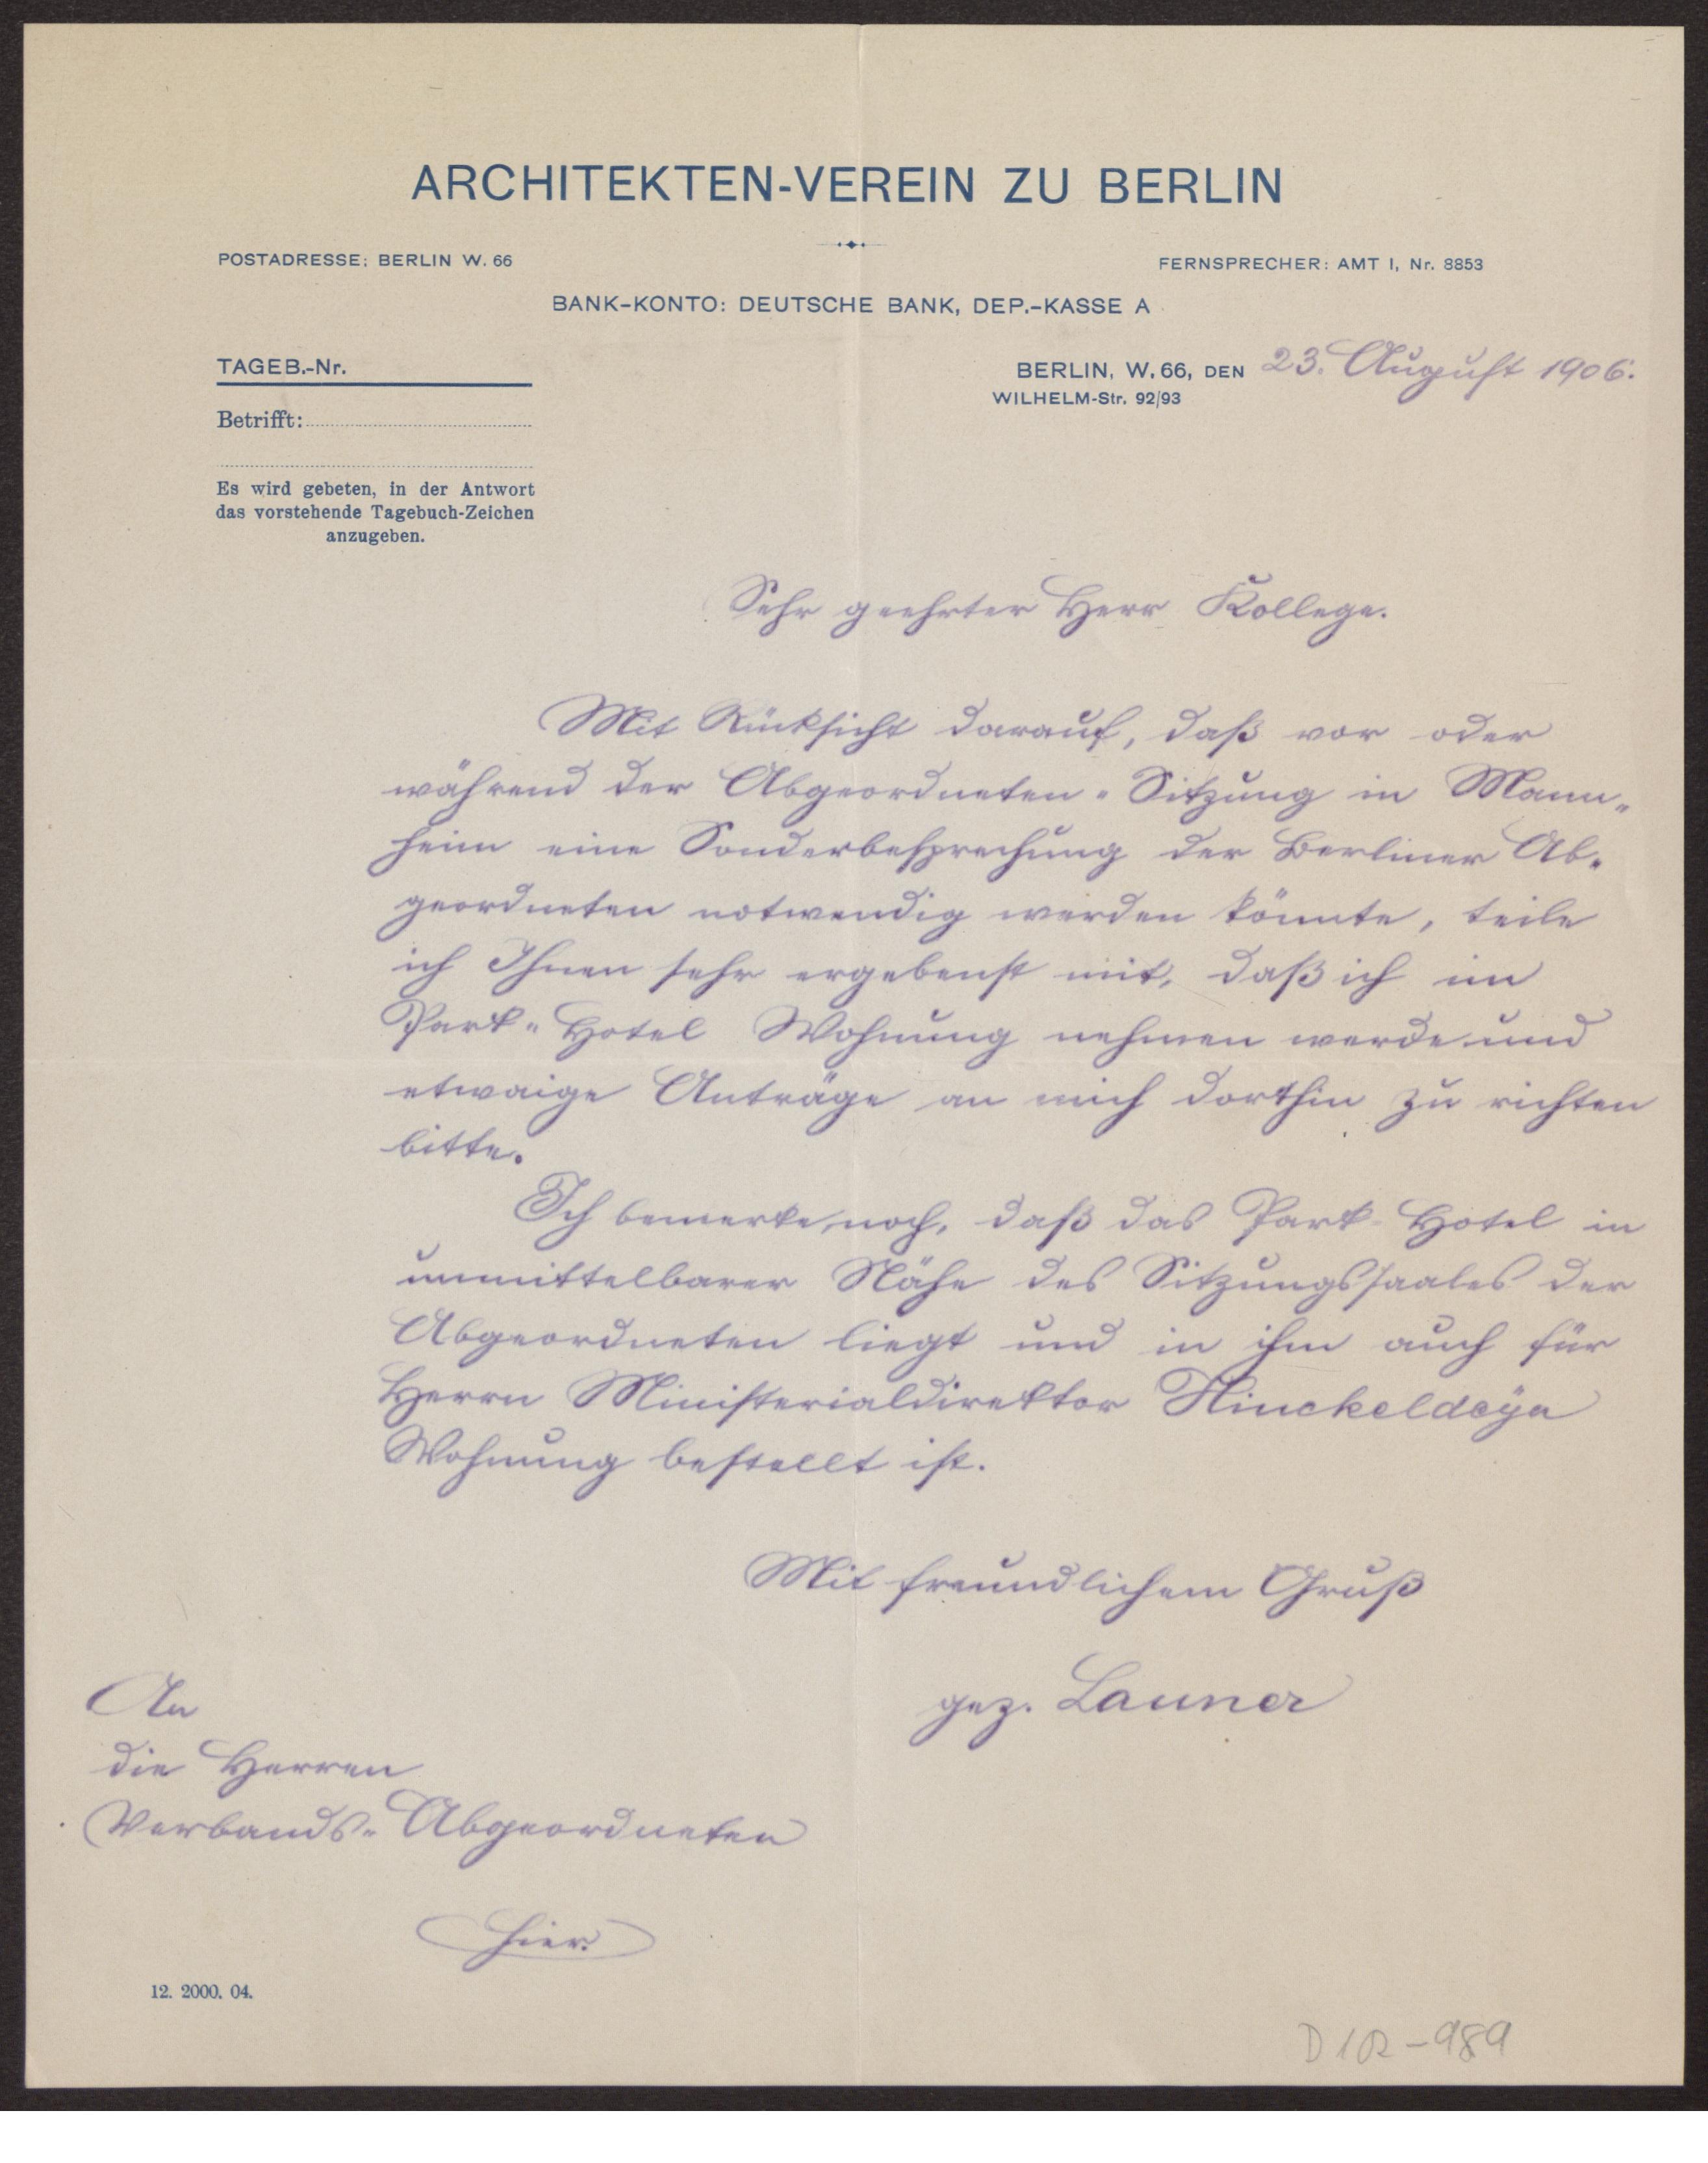 ARCHITEKTEN-VEREIN ZU BERLIN
POSTADRESSE: BERLIN W. 66
FERNSPRECHER: AMT I, Nr. 8853
BANK-KONTO: DEUTSCHE BANK, DEP.-KASSE A
TAGEB.-Nr.
BERLIN, W. 66, DEN 23. August 1906.
WILHELM-Str. 92/93
Betrifft:
Es wird gebeten, in der Antwort
das vorstehende Tagebuch-Zeichen
anzugeben.
Sehr geehrter Herr Kollege.
Mit Rücksicht darauf, daß vor oder
während der Abgeordneten-Sitzung in Mann-
heim eine Sonderbesprechung der Berliner Ab-
geordneten notwendig werden könnte, teile
ich Ihnen sehr ergebenst mit, daß ich im
Park-Hotel Wohnung nehmen werde und
etwaige Anträge an mich dorthin zu richten
bitte.
Ich bemerke noch, daß das Park-Hotel in
unmittelbarer Nähe des Sitzungssaales der
Abgeordneten liegt und in ihm auch für
Herrn Ministerialdirektor Hinckeldeyn
Wohnung bestellt ist.
Mit freundlichem Gruß
gez. Launer
An
die Herren
Verbands-Abgeordneten
Hier.
12. 2000. 04.